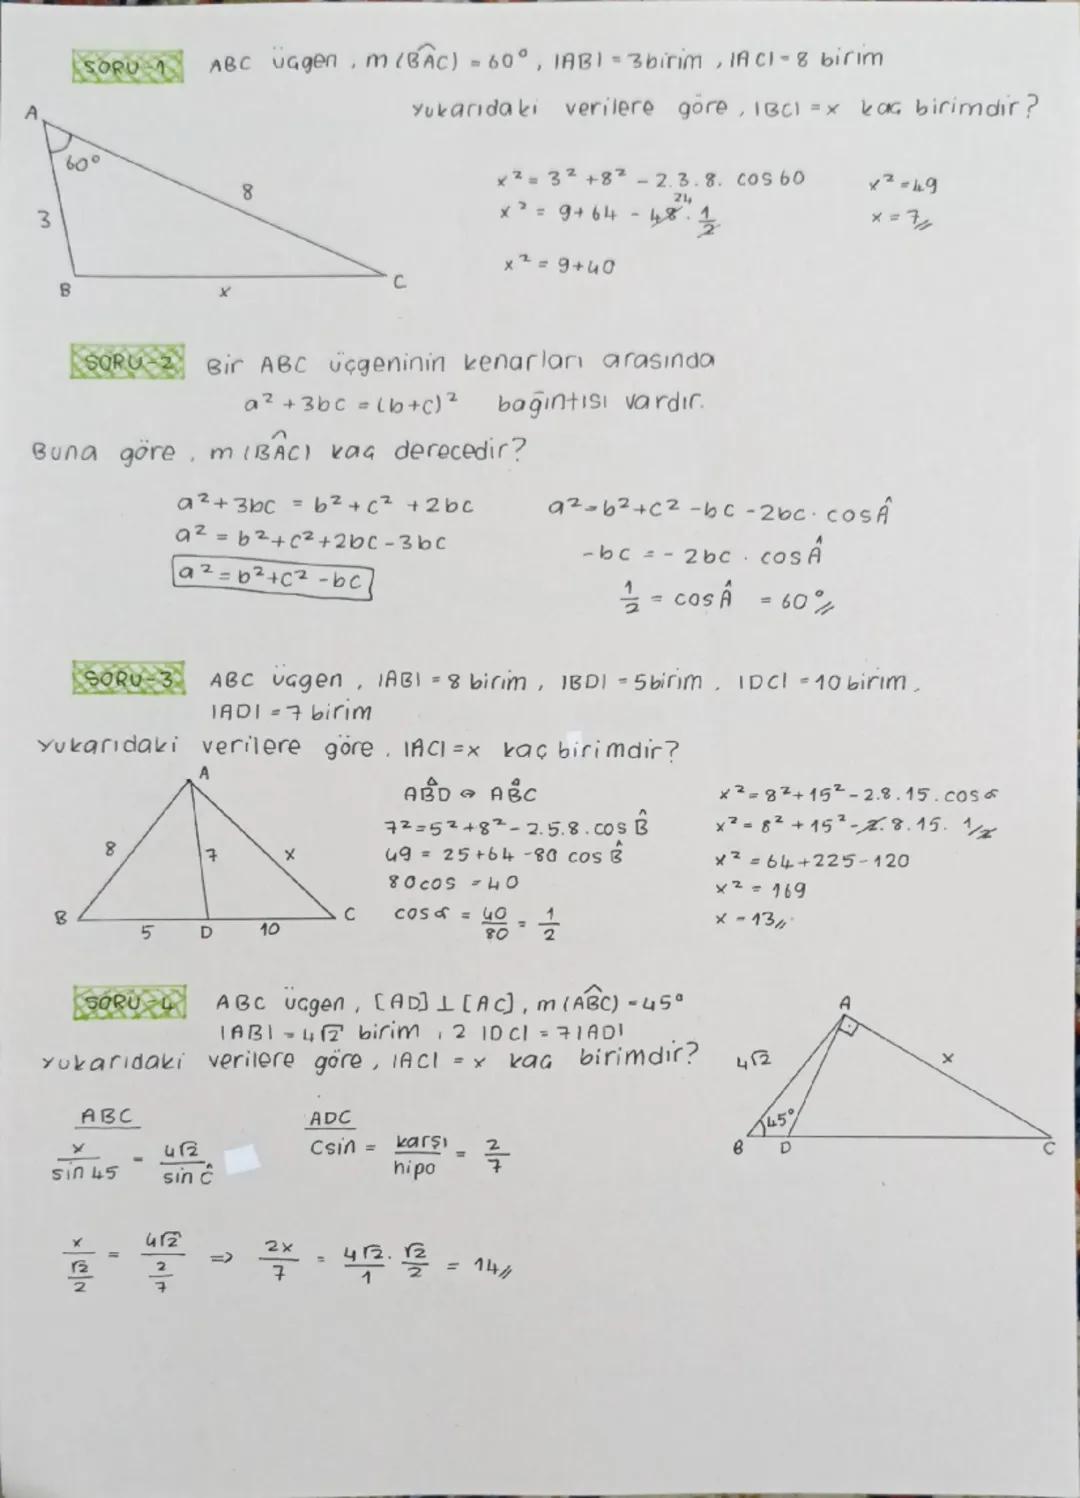 SORU-1 ABC üçgen, m(BÂC) = 60°, |AB| = 3 birim, |AC| = 8 birim
Yukarıdaki verilere göre, |BC| = x kaç birimdir?
A
60°
8
3
B
x
C
x² = 3² + 8² - 2.3.8. cos 60
x² = 9 + 64 - 48. 1/2
24
x² = 9 + 40
x² = 49
x = 7//
SORU-2 Bir ABC üçgeninin kenarları arasında
a² + 3bc = (b+c)² bağıntısı vardır.
Buna göre, m(BÂC) kaç derecedir?
a² + 3bc = b² + c² + 2bc
a² = b² + c² + 2bc - 3bc
a² = b² + c² - bc
a² = b² + c² - bc - 2bc. cos Â
-bc = - 2bc. cos Â
1/2 = cos Â = 60°//
SORU-3 ABC üçgen, |AB| = 8 birim, |BD| = 5 birim, |DC| = 10 birim,
|AD| = 7 birim
Yukarıdaki verilere göre, |AC| = x kaç birimdir?
A
8
7
x
B
5
D
10
C
ABD ⇔ ABC
7² = 5² + 8² - 2.5.8. cos B̂
49 = 25 + 64 - 80 cos B̂
80 cos = 40
cos α = 40/80 = 1/2
x² = 8² + 15² - 2.8.15. cos α
x² = 8² + 15² - 2.8.15. 1/2
x² = 64 + 225 - 120
x² = 169
x = 13//
SORU-4 ABC üçgen, [AD] ⊥ [AC], m(ABC) = 45°
|AB| = 4√2 birim, 2 |DC| = 7|AD|
Yukarıdaki verilere göre, |AC| = x kaç birimdir?
A
4√2
x
45°
B
D
C
ABC
x/sin 45 = 4√2/sin Ĉ
ADC
Csin = karşı/hipo = 2/7
x/(√2/2) = 4√2/(2/7) ⇒ 2x/7 = 4√2/1 . √2/2 = 14//